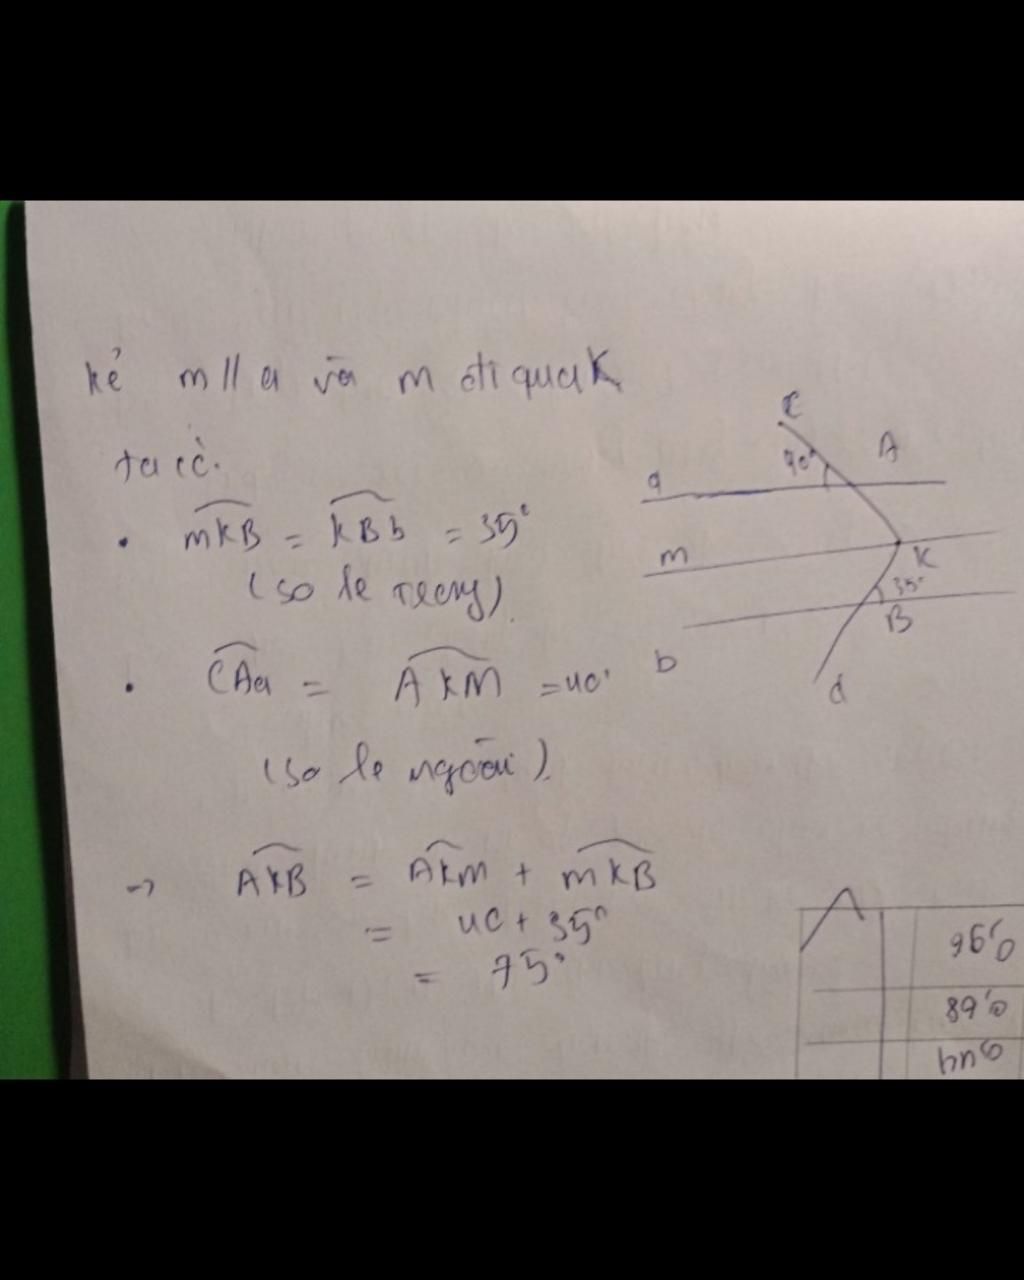 kẻ m // a và m đi qua K
ta có.
• mKB = KBb = 35°
(so le trong)
• CAa = AKM = 40°
(so le ngoài).
→ AKB = AKM + mKB
= 40 + 35°
= 75°
C
40°
A
a
m
K
35°
B
b
d
0,96
0,68